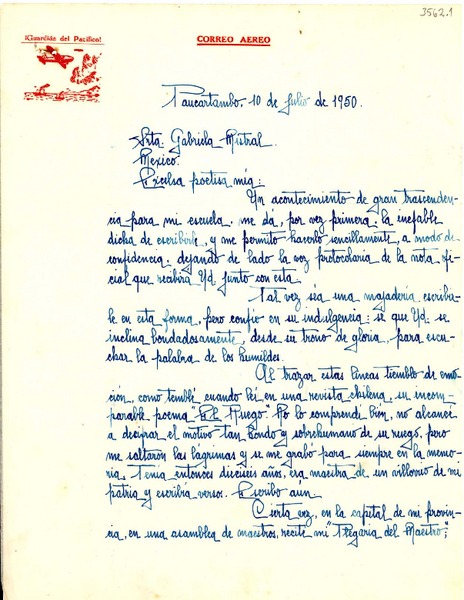 3562.1
¡Guardián del Pacífico!
CORREO AEREO
Paucartambo, 10 de Julio de 1950.
Srta. Gabriela Mistral.
Mexico.
Excelsa poetisa mía:
Un acontecimiento de gran trascenden-
cia para mi escuela, me dá, por vez primera, la inefable
dicha de escribirle, y me permito hacerlo sencillamente, a modo de
confidencia, dejando de lado la voz protocolaria de la nota ofi-
cial que recibirá Ud. junto con esta.
Tal vez sea una majadería escribir-
le en esta forma, pero confío en su indulgencia: se que Ud. se
inclina bondadosamente, desde su trono de gloria, para escu-
char la palabra de los humildes.
Al trazar estas líneas tiemblo de emo-
ción, como temblé cuando leí en una revista chilena, su incom-
parable poema "El Ruego. No lo comprendí bien, no alcancé
a decifrar el motivo tan hondo y sobrehumano de su ruego, pero
me saltaron las lágrimas y se me grabó para siempre en la memo-
ria. Tenía entonces dieciseis años, era maestra de un villorrio de mi
patria y escribía versos. Escribo aún.
Cierta vez, en la capital de mi provin-
cia, en una asamblea de maestros, recité mi "Plegaria del Maestro",